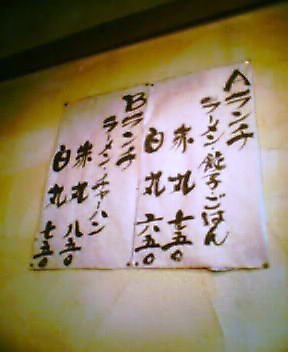 Aランチ
ラーメン・餃子・ごはん
赤丸 七五〇
白丸 六五〇
Bランチ
ラーメン・チャーハン
赤丸 八五〇
白丸 七五〇